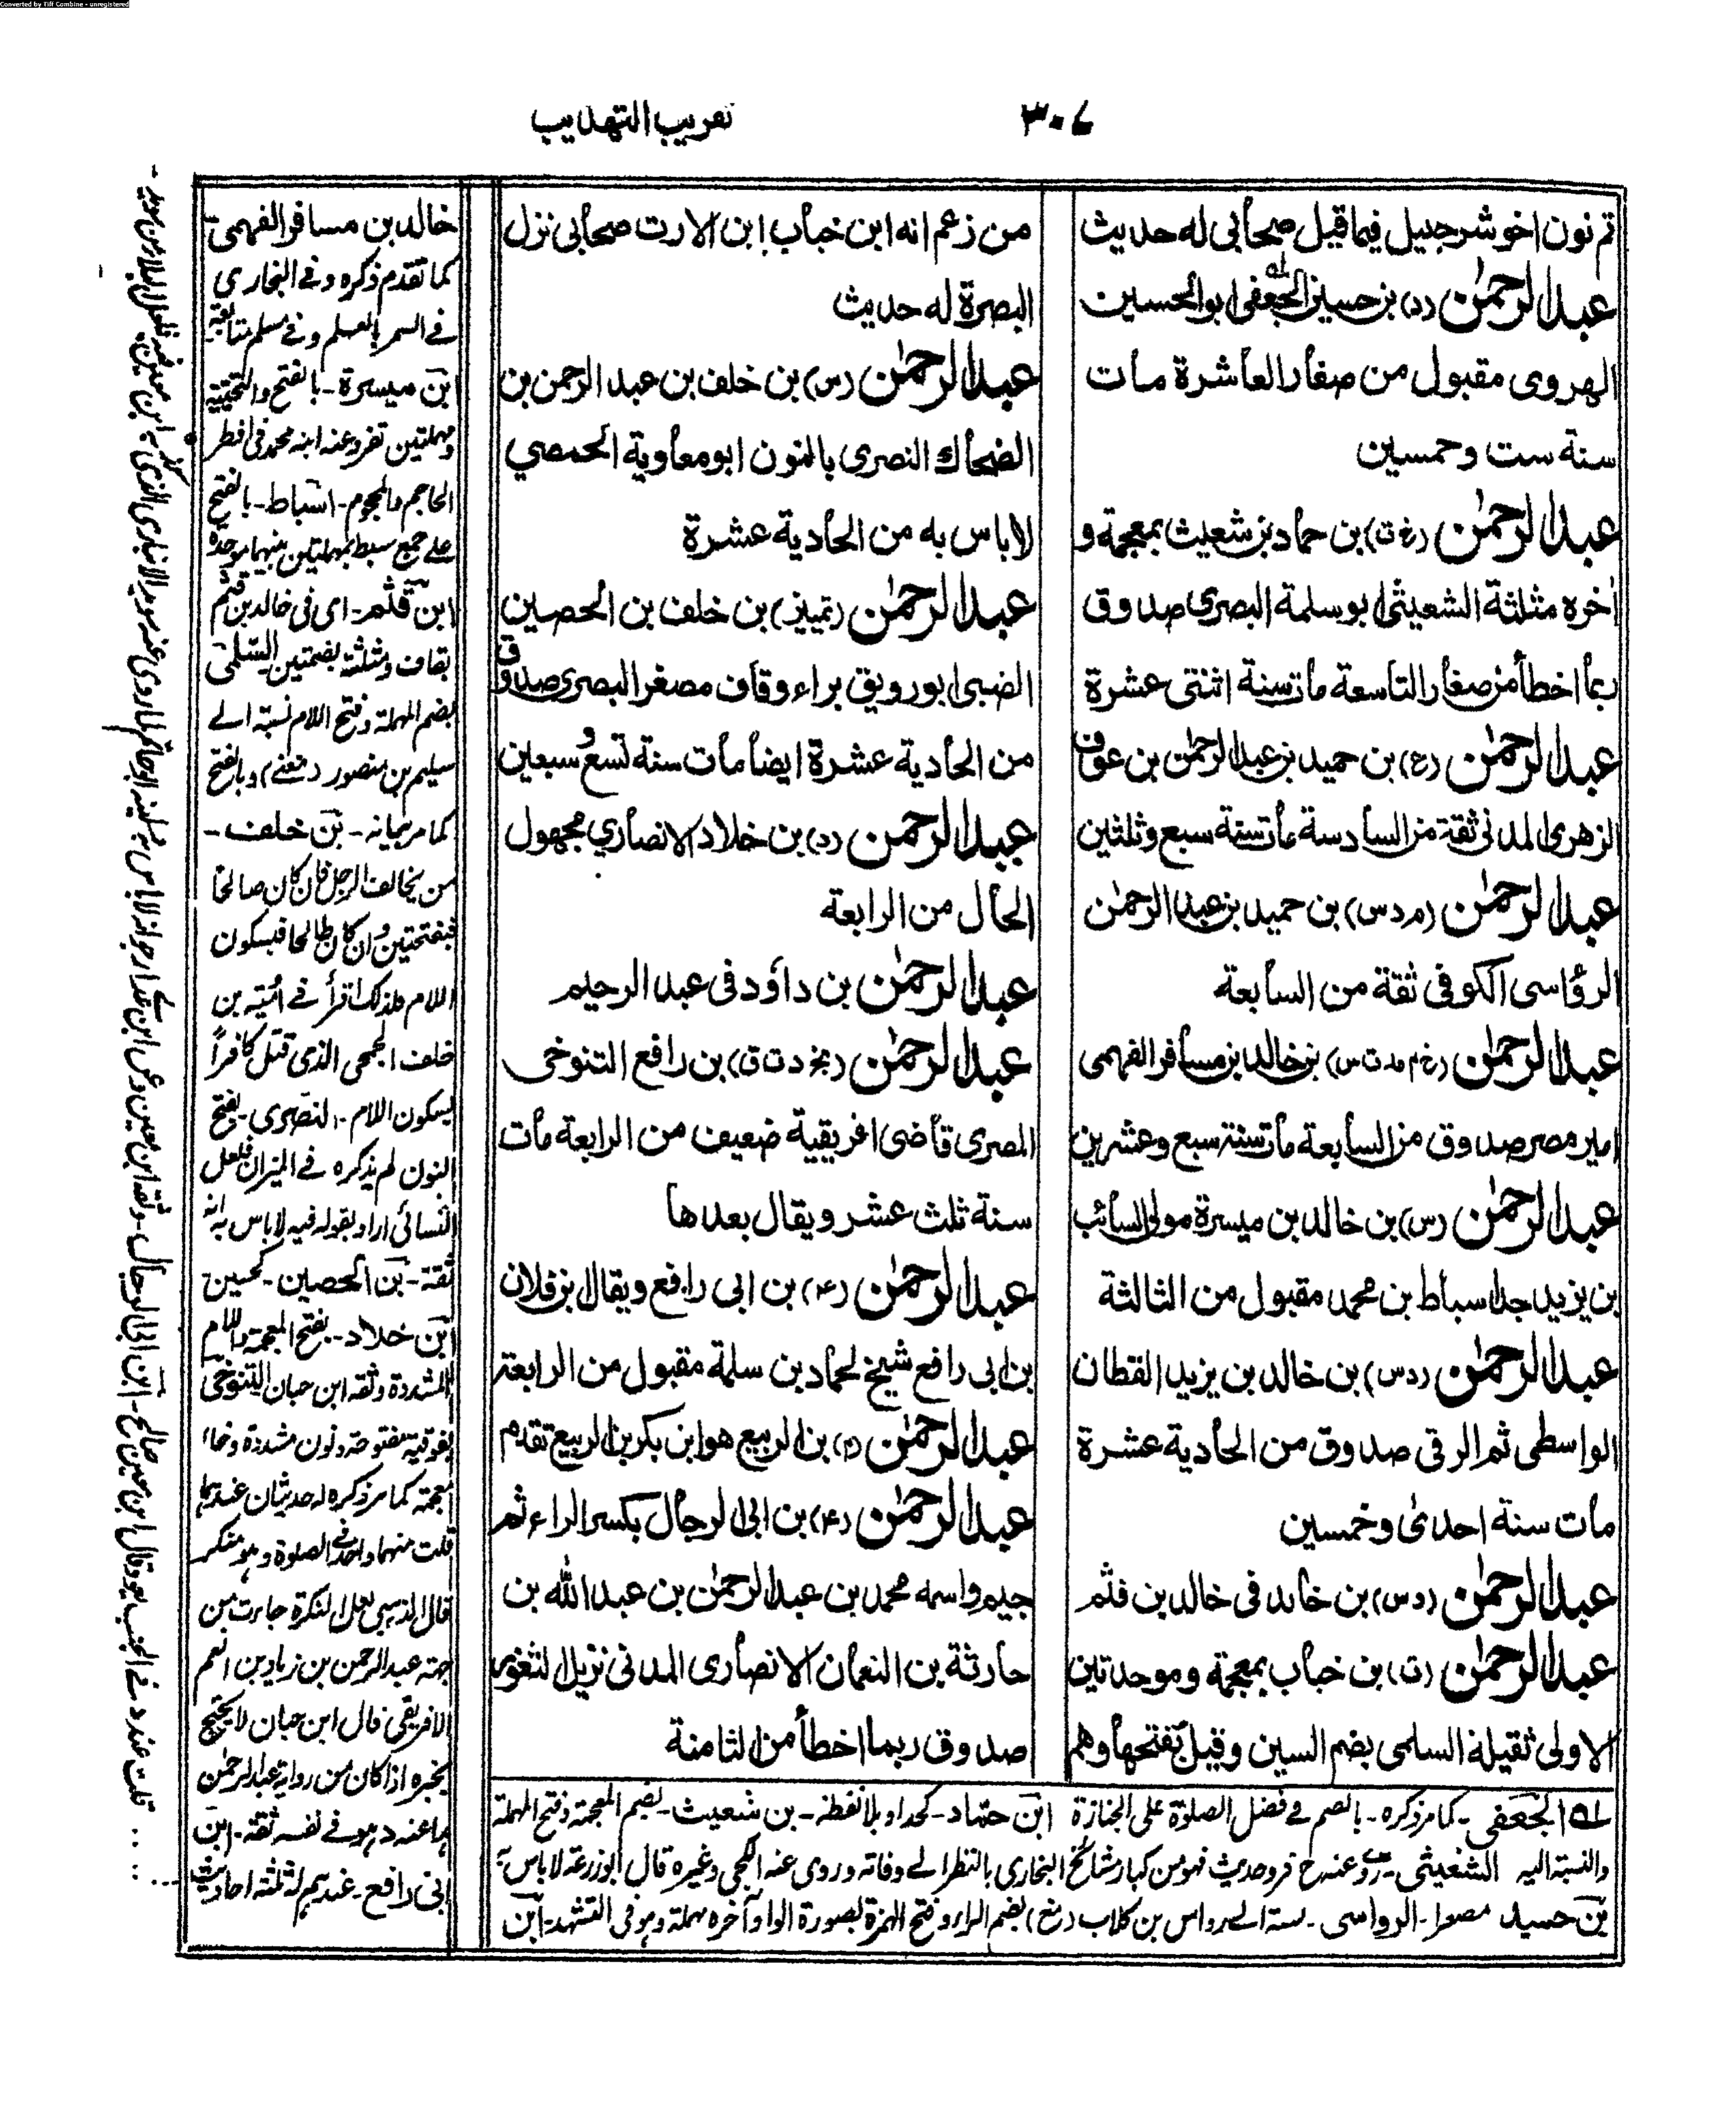 Converted by Tiff Combine - unregistered
٣٠٧
تقريب التهذيب
ثم نون اخو شرحبيل فيما قيل صحابى له حديث
عبد الرحمٰن (د) بن حسين الجعفى ابو الحسين
الهروى مقبول من صغار العاشرة مات
سنة ست وخمسين
عبد الرحمٰن (خ ت) بن حماد بن شعيث بمعجمة و
اٰخره مثلثة الشعيثى ابو سلمة البصرى صدوق
ربما اخطأ من صغار التاسعة مات سنة اثنتى عشرة
عبد الرحمٰن (ع) بن حميد بن عبد الرحمٰن بن عوف
الزهرى المدنى ثقة من السادسة مات سنة سبع وثلثين
عبد الرحمٰن (م د س) بن حميد بن عبد الرحمٰن
الرؤاسى الكوفى ثقة من السابعة
عبد الرحمٰن (خ م مد ت س) بن خالد بن مسافر الفهمى
امير مصر صدوق من السابعة مات سنة سبع وعشرين
عبد الرحمٰن (س) بن خالد بن ميسرة مولى السائب
بن يزيد جد اسباط بن محمد مقبول من الثالثة
عبد الرحمٰن (د س) بن خالد بن يزيد القطان
الواسطى ثم الرقى صدوق من الحادية عشرة
مات سنة احدىٰ وخمسين
عبد الرحمٰن (د س) بن خالد فى خالد بن قثم
عبد الرحمٰن (ت) بن خباب بمعجمة وموحدتين
الاولى ثقيلة السلمى بضم السين وقيل بفتحها وهم
من زعم انه ابن خباب ابن الارت صحابى نزل
البصرة له حديث
عبد الرحمٰن (س) بن خلف بن عبد الرحمن بن
الضحاك النصرى بالنون ابو معاوية الحمصي
لاباس به من الحادية عشرة
عبد الرحمٰن (تمييز) بن خلف بن الحصين
الضبى ابو رويق براء وقاف مصغر البصرى صدوق
من الحادية عشرة ايضا مات سنة تسع وسبعين
عبد الرحمن (د) بن خلاد الانصاري مجهول
الحال من الرابعة
عبد الرحمٰن بن داؤد فى عبد الرحيم
عبد الرحمٰن (بخ د ت ق) بن رافع التنوخى
المصرى قاضى افريقية ضعيف من الرابعة مات
سنة ثلث عشر ويقال بعدها
عبد الرحمٰن (٤) بن ابى رافع ويقال بن فلان
بن ابى رافع شيخ لحماد بن سلمة مقبول من الرابعة
عبد الرحمٰن (م) بن الربيع هو ابن بكر بن الربيع تقدم
عبد الرحمٰن (٤) بن ابى الرجال بكسر الراء ثم
جيم واسمه محمد بن عبد الرحمٰن بن عبد الله بن
حارثة بن النعمان الانصارى المدنى نزيل الثغور
صدوق ربما اخطأ من الثامنة
خالد بن مسافر الفهمى
كما تقدم ذكره وفى البخارى
فى السمر بالعلم وفى مسلم متابعة
ابن ميسرة - بالفتح والتحتية
ومهملتين تفرد عنه ابنه محمد فى افطر
الحاجم والمحجوم - اسباط - بالفتح
على جمع سبط بمهملتين بينهما موحدة
ابن قثم - اى فى خالد بن قثم
بقاف ومثلثة بضمتين السلمى
بضم المهملة وفتح اللام نسبة الى
سليم بن منصور (مغنى) وبالفتح
كما مر بيانه - بن خلف -
من يخالف الرجل فان كان صالحا
فبفتحتين وان كان طالحا فبسكون
اللام فلذلك اقرأ فى امية بن
خلف الجمحى الذى قتل كافرا
بسكون اللام - النصرى - بفتح
النون لم يذكره فى الميزان فلعل
النسائى اراد بقوله فيه لاباس به انه
ثقة - بن الحصين - كحسين
ابن خلاد - بفتح المعجمة واللام
المشددة وثقه ابن حبان التنوخى
بفوقية مفتوحة ونون مشددة وخاء
معجمة كما مر ذكره له حديثان عندهما
قلت منهما واحد فى الصلوة وهو منكر
قال الذهبى لعل النكرة جاءت من
جهة عبد الرحمن بن زياد بن انعم
الافريقى قال ابن حبان لا يحتج
بخبره اذا كان من رواية عبد الرحمٰن
عنه وهو فى نفسه ثقة - ابن
ابى رافع - عندهم له ثلثة احاديث
له الجعفى - كما مر ذكره - بالضم فى فضل الصلوة على الجنازة ابن حماد - كحداد بلا نقطة - بن شعيث - بضم المعجمة وفتح المهملة
والنسبة اليه الشعيثى - روى عنه خ فرد حديث فهو من كبار مشائخ البخارى بالنظر الى وفاته وروى عنه الكجى وغيره قال ابو زرعة لاباس به
بن حميد مصغرا - الرواسى - نسبة الى رواس بن كلاب (مغ) بضم الراء وفتح الهمزة بصورة الواو آخره مهملة وهو فى التشهد - ابن